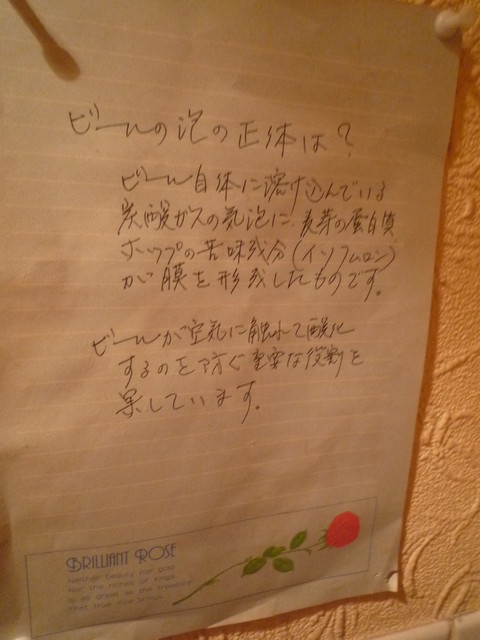 ビールの泡の正体は?
ビール自体に溶け込んでいる
炭酸ガスの気泡に、麦芽の蛋白質
ホップの苦味成分(イソフムロン)
が膜を形成したものです。
ビールが空気に触れて酸化
するのを防ぐ重要な役割を
果しています。
BRILLIANT ROSE
Neither beauty nor gold
Nor the riches of kings
Is as great as the treasure
That true love brings.